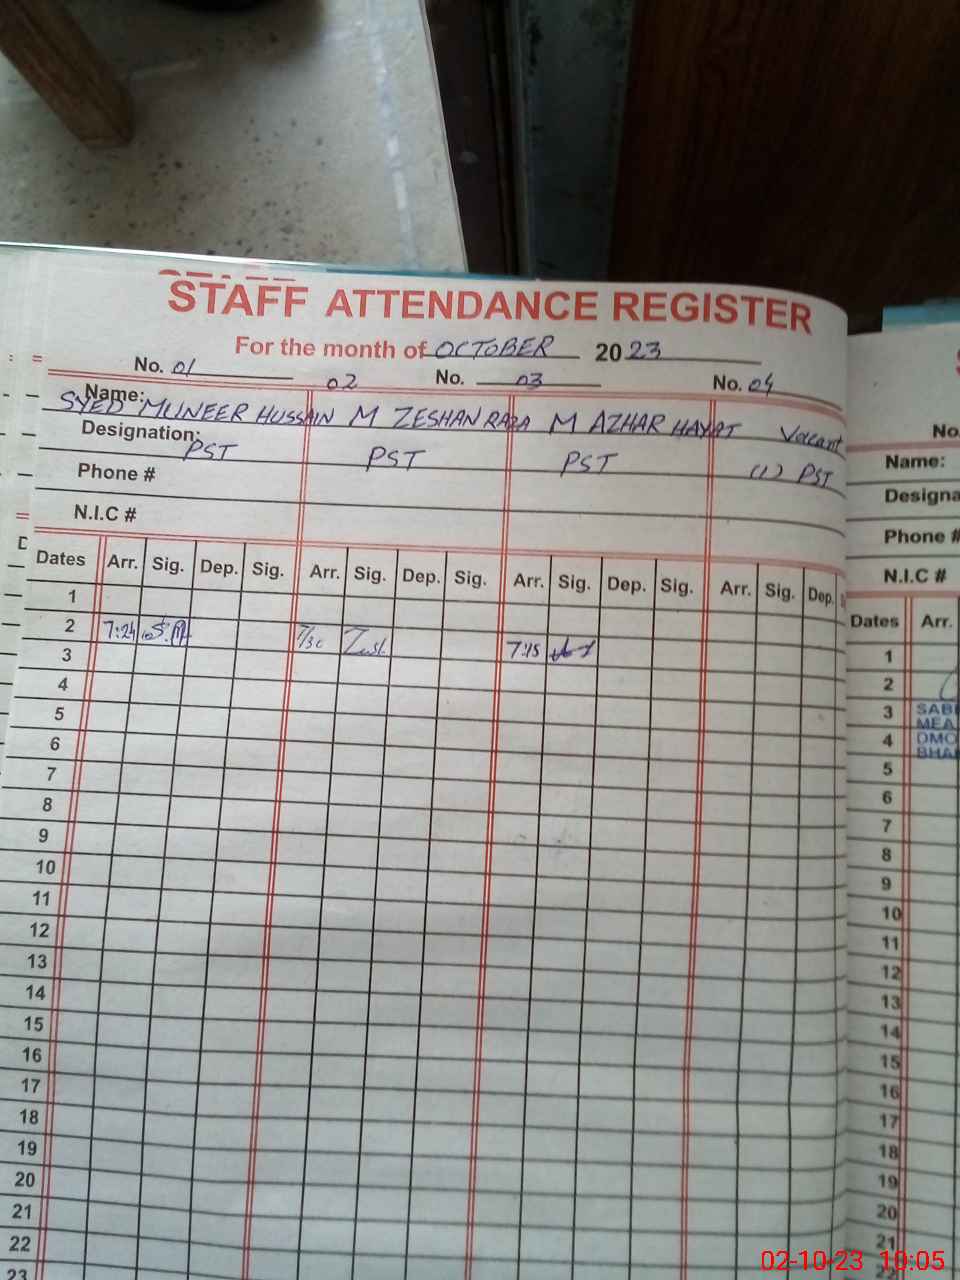 STAFF ATTENDANCE REGISTER
For the month of OCTOBER 2023
No. 01 02 No. 03 No. 04
Name: SYED MUNEER HUSSAIN M ZESHAN RAZA M AZHAR HAYAT Vacant
Designation: PST PST PST (1) PST
Phone #
N.I.C #
Dates Arr. Sig. Dep. Sig. Arr. Sig. Dep. Sig. Arr. Sig. Dep. Sig. Arr. Sig. Dep.
1
2 7:24 7:15
3
4
5
6
7
8
9
10
11
12
13
14
15
16
17
18
19
20
21
22
23
No.
Name:
Designa
Phone #
N.I.C #
Dates Arr.
1
2
3 SAB
MEA
4 DMO
BHA
5
6
7
8
9
10
11
12
13
14
15
16
17
18
19
20
21
02-10-23 10:05